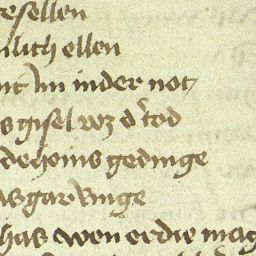 esellen
ulich ellen
nt im in der not
s gisel wz d tod
dehains gedinge
as gar ringe
has wen er die mag